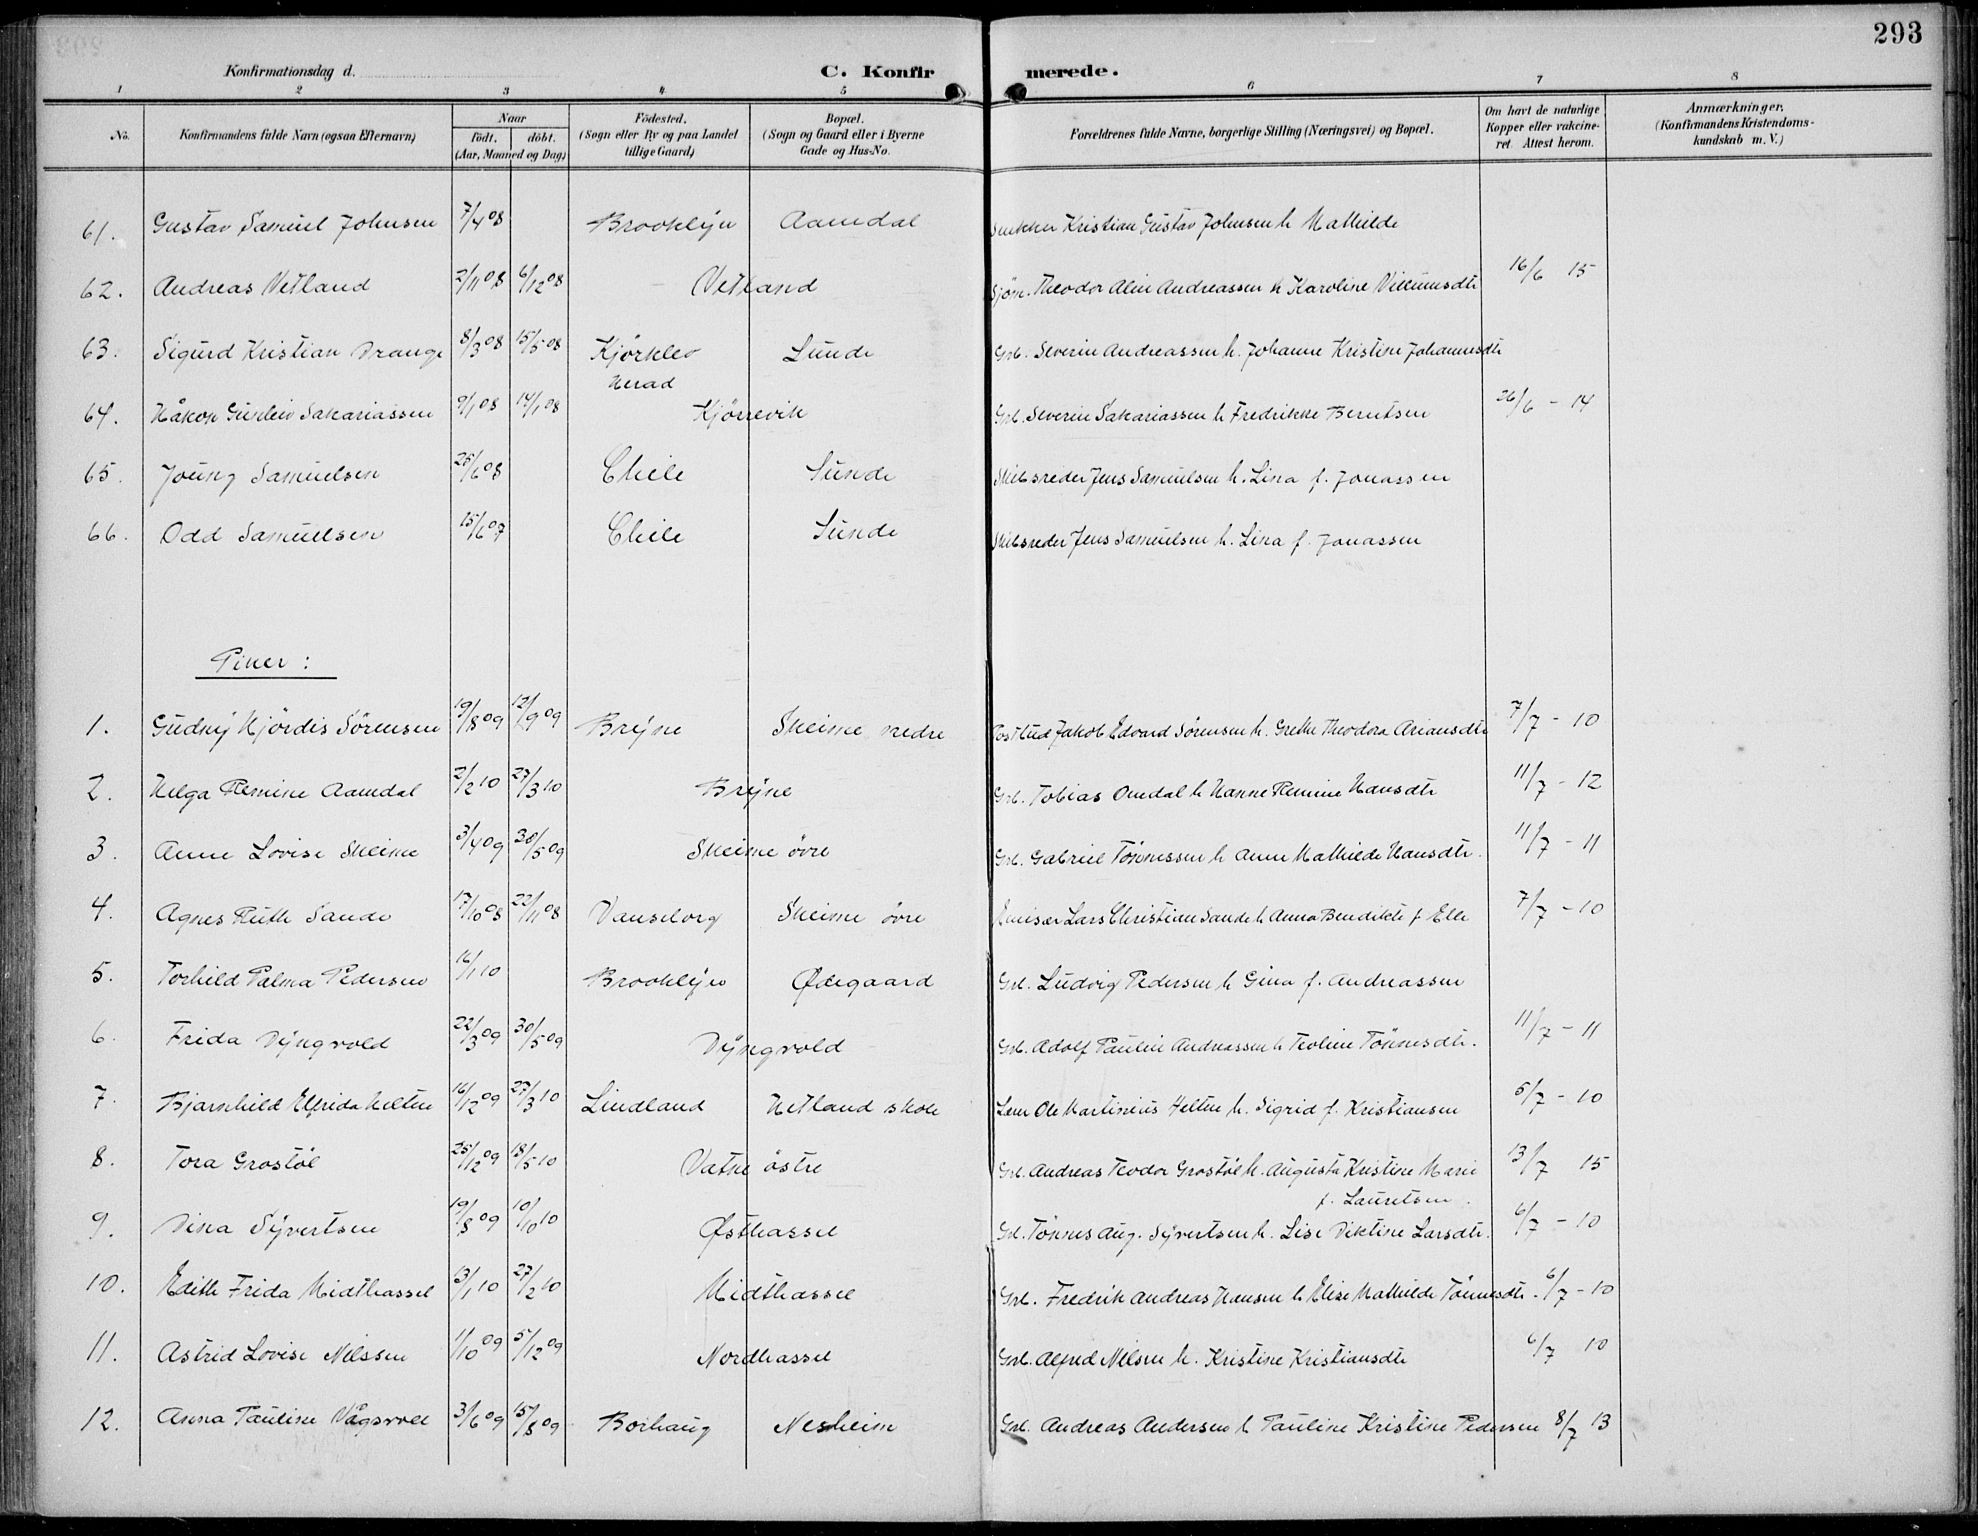 293
Konfirmationsdag d.
C. Konfirmerede.
1 2 3 4 5 6 7 8
No.
Konfirmandens fulde Navn (ogsaa Efternavn)
Naar
födt. döbt.
(Aar, Maaned og Dag)
Födested.
(Sogn eller By og paa Landet
tillige Gaard)
Bopæl.
(Sogn og Gaard eller i Byerne
Gade og Hus-No.
Forældrenes fulde Navne, borgerlige Stilling (Næringsvei) og Bopæl.
Om havt de naturlige
Kopper eller vakcine-
ret. Attest herom.
Anmærkninger,
(Konfirmandens Kristendoms-
kundskab m. V.)
61. Gustav Samuel Johnsen 7/4 08 Brooklyn Aamdal Snekker Kristian Gustav Johnsen h Mathilde
62. Andreas Vetland 2/11 08 6/12 08 Vetland Sjøm. Theodor Alin Andreassen h Karoline Villumsdtr 16/6 15
63. Sigurd Kristian Drange 8/3 08 15/5 08 Kjørklev Lunde Grb. Severin Andreassen h. Johanne Kristine Johannesdtr
Herad
64. Håkon Gunleiv Sakariassen 9/1 08 14/1 08 Kjörrevik Grb. Severin Sakariassen h Fredrikke Berntsen 26/6 - 14
65. Joung Samuelsen 25/6 08 Chile Sunde Skibsreder Jens Samuelsen h. Lina f. Jonassen
66. Odd Samuelsen 15/6 07 Chile Sunde Skibsreder Jens Samuelsen h. Lina f. Jonassen
Piker :
1. Gudny Hjördis Sörensen 19/8 09 12/9 09 Bryne Skeime nedre Postbud Jakob Edvard Sörensen h. Grethe Theodora Ariansdtr 7/7 - 10
2. Helga Remine Aamdal 2/2 10 27/3 10 Bryne Grb. Tobias Omdal h Hanne Remine Hansdtr 11/7 - 12
3. Anne Lovise Skeime 3/4 09 30/5 09 Skeime övre Grb. Gabriel Tönnessen h Anne Mathilde Hansdtr. 11/7 - 11
4. Agnes Ruth Sande 17/10 08 22/11 08 Vanseborg Skeime övre Emisær Lars Christian Sande h Anna Bendikte f Elle 7/7 - 10
5. Torhild Palma Pedersen 16/1 10 Brooklyn Ødegaard Grb. Ludvig Pedersen h Gina f. Andreassen
6. Frida Dyngvold 22/3 09 30/5 09 Dyngvold Grb. Adolf Paulin Andreassen h Teoline Tönnesdtr. 11/7 - 11
7. Bjarnhild Elfrida Heltne 16/12 09 27/3 10 Lindland Hetland skole Lærer Ole Martinius Heltne h. Sigrid f. Kristiansen 5/7 - 10
8. Tora Grostöl 25/12 09 18/5 10 Vatne östre Grb. Andreas Teodor Grostöl h. Augusta Kristine Marie 13/7 15
f. Lauritsen.
9. Dina Syvertsen 19/8 09 10/10 10 Østhassel Grb. Tönnes Aug. Syvertsen h. Lise Diktine Larsdtr. 6/7 - 10
10. Edith Frida Midthassel 13/1 10 27/2 10 Midthassel Grb. Fredrik Andreas Hansen h Elise Mathilde Tönnesdtr. 6/7 - 10
11. Astrid Lovise Nilssen 1/10 09 5/12 09 Nordhassel Grb. Alfred Nilsen h. Kristine Kristiansdtr 6/7 10
12. Anna Pauline Vågsvoll 3/6 09 15/8 09 Borhaug Nesheim Grb. Andreas Andersen h Pauline Kristine Pedersen 8/7 13